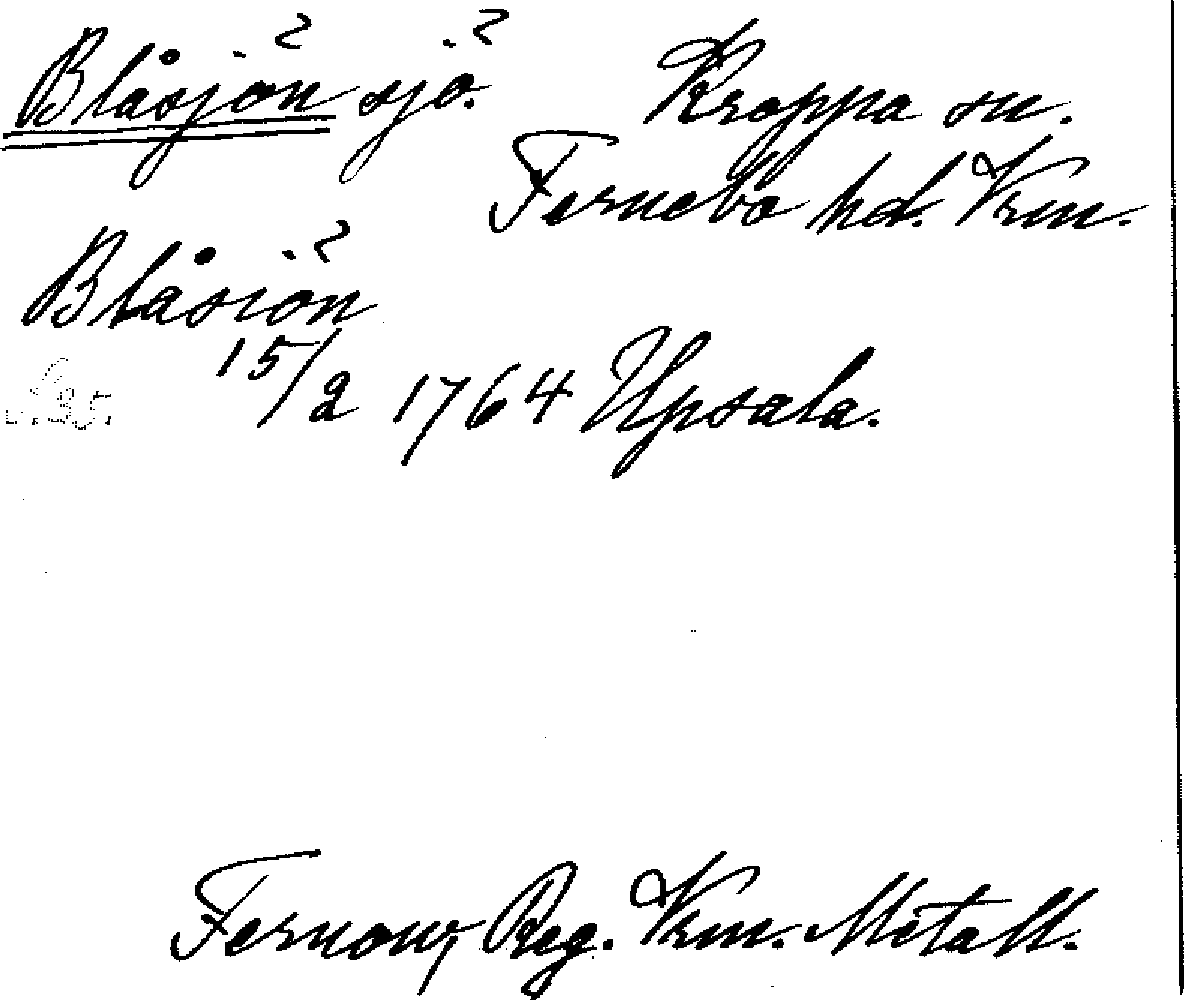 Blåsjön sjö. Kroppa sn.
Fernebo hd. Vrm.
Blåsiön
15/2 1764 Upsala.
Fernow, Reg. Vrm. Metall.